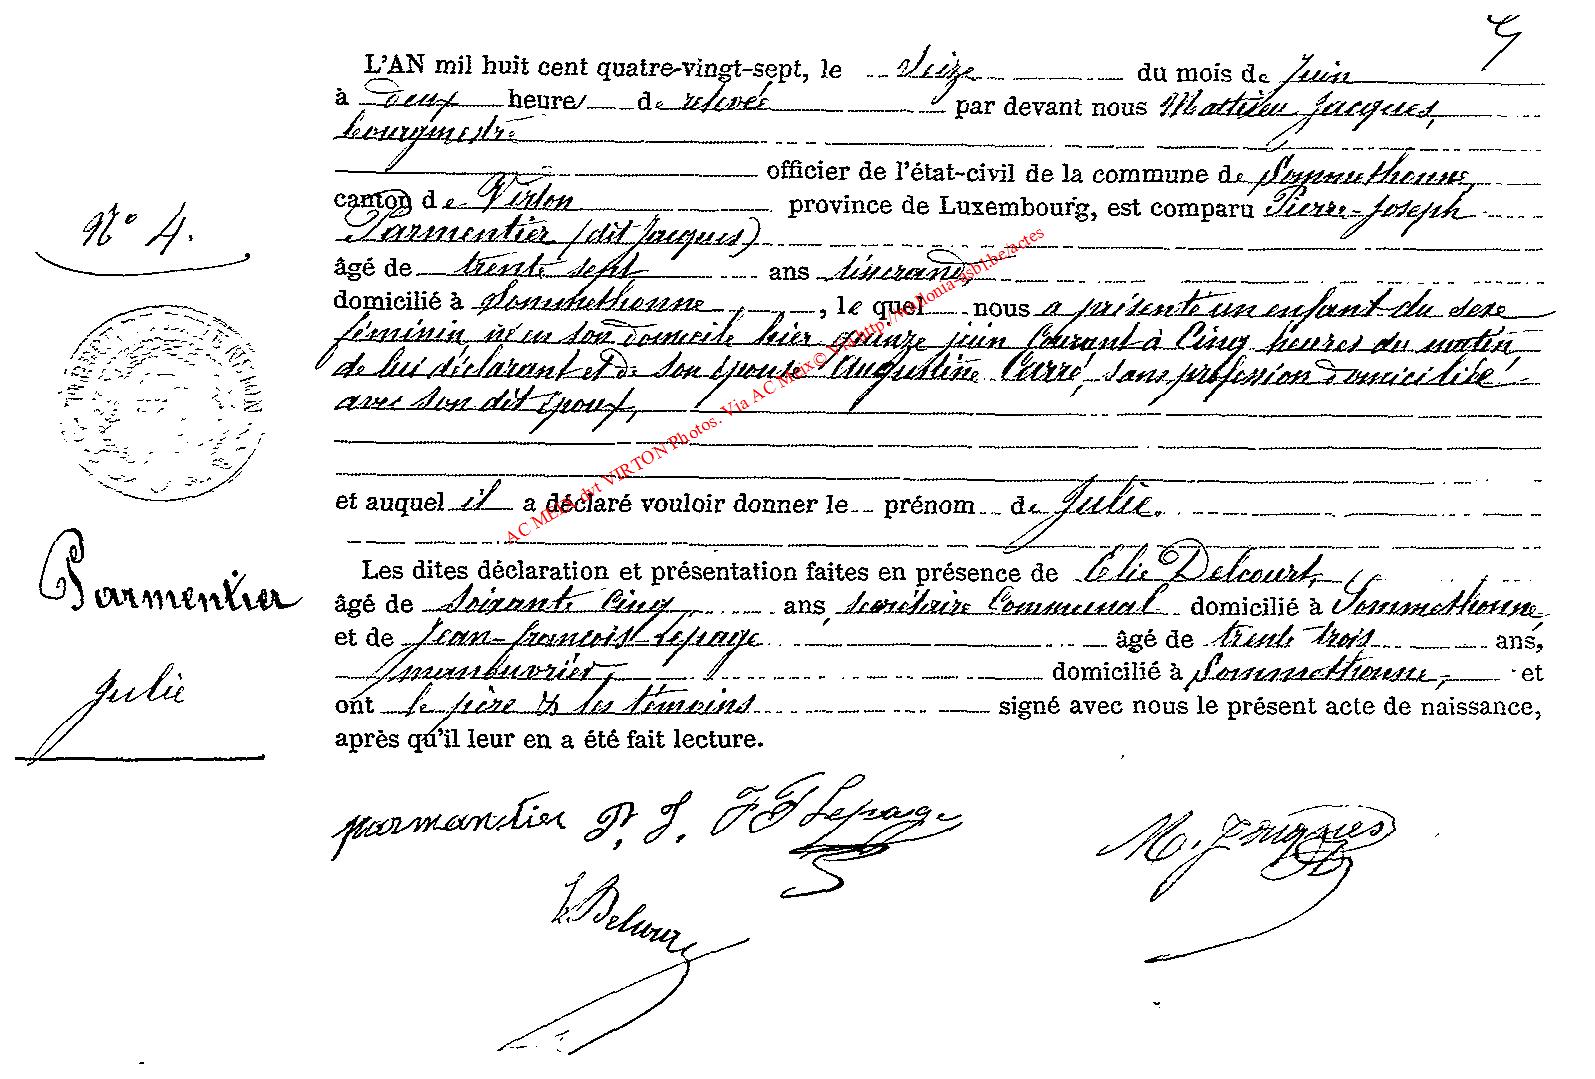 L'AN mil huit cent quatre-vingt-sept, le Seize du mois de Juin
à deux heures de relevée par devant nous Mathieu Jacques,
bourgmestre
officier de l'état-civil de la commune de Sommethonne,
canton de Virton province de Luxembourg, est comparu Pierre-Joseph
Parmentier (dit Jacques)
N° 4.
âgé de trente sept ans tisserand,
domicilié à Sommethonne, , le quel nous a présenté un enfant du sexe
féminin, né en son domicile hier quinze juin courant à cinq heures du matin,
de lui déclarant et de son épouse Augustine Curré, sans profession domiciliée
avec son dit époux,
et auquel il a déclaré vouloir donner le prénom de Julie.
Les dites déclaration et présentation faites en présence de Elie Delcourt,
Parmentier
âgé de soixante cinq, ans, secrétaire communal domicilié à Sommethonne,
et de Jean-françois Lepage âgé de trente trois ans,
manouvrier, domicilié à Sommethonne, et
Julie
ont le père & les témoins signé avec nous le présent acte de naissance,
après qu'il leur en a été fait lecture.
parmantier P. J. J F Lepage
M. Jacques
E. Delcourt
AC MEIX dvt VIRTON Photos. Via AC Meix© VR http://wallonia-asbl.be/actes